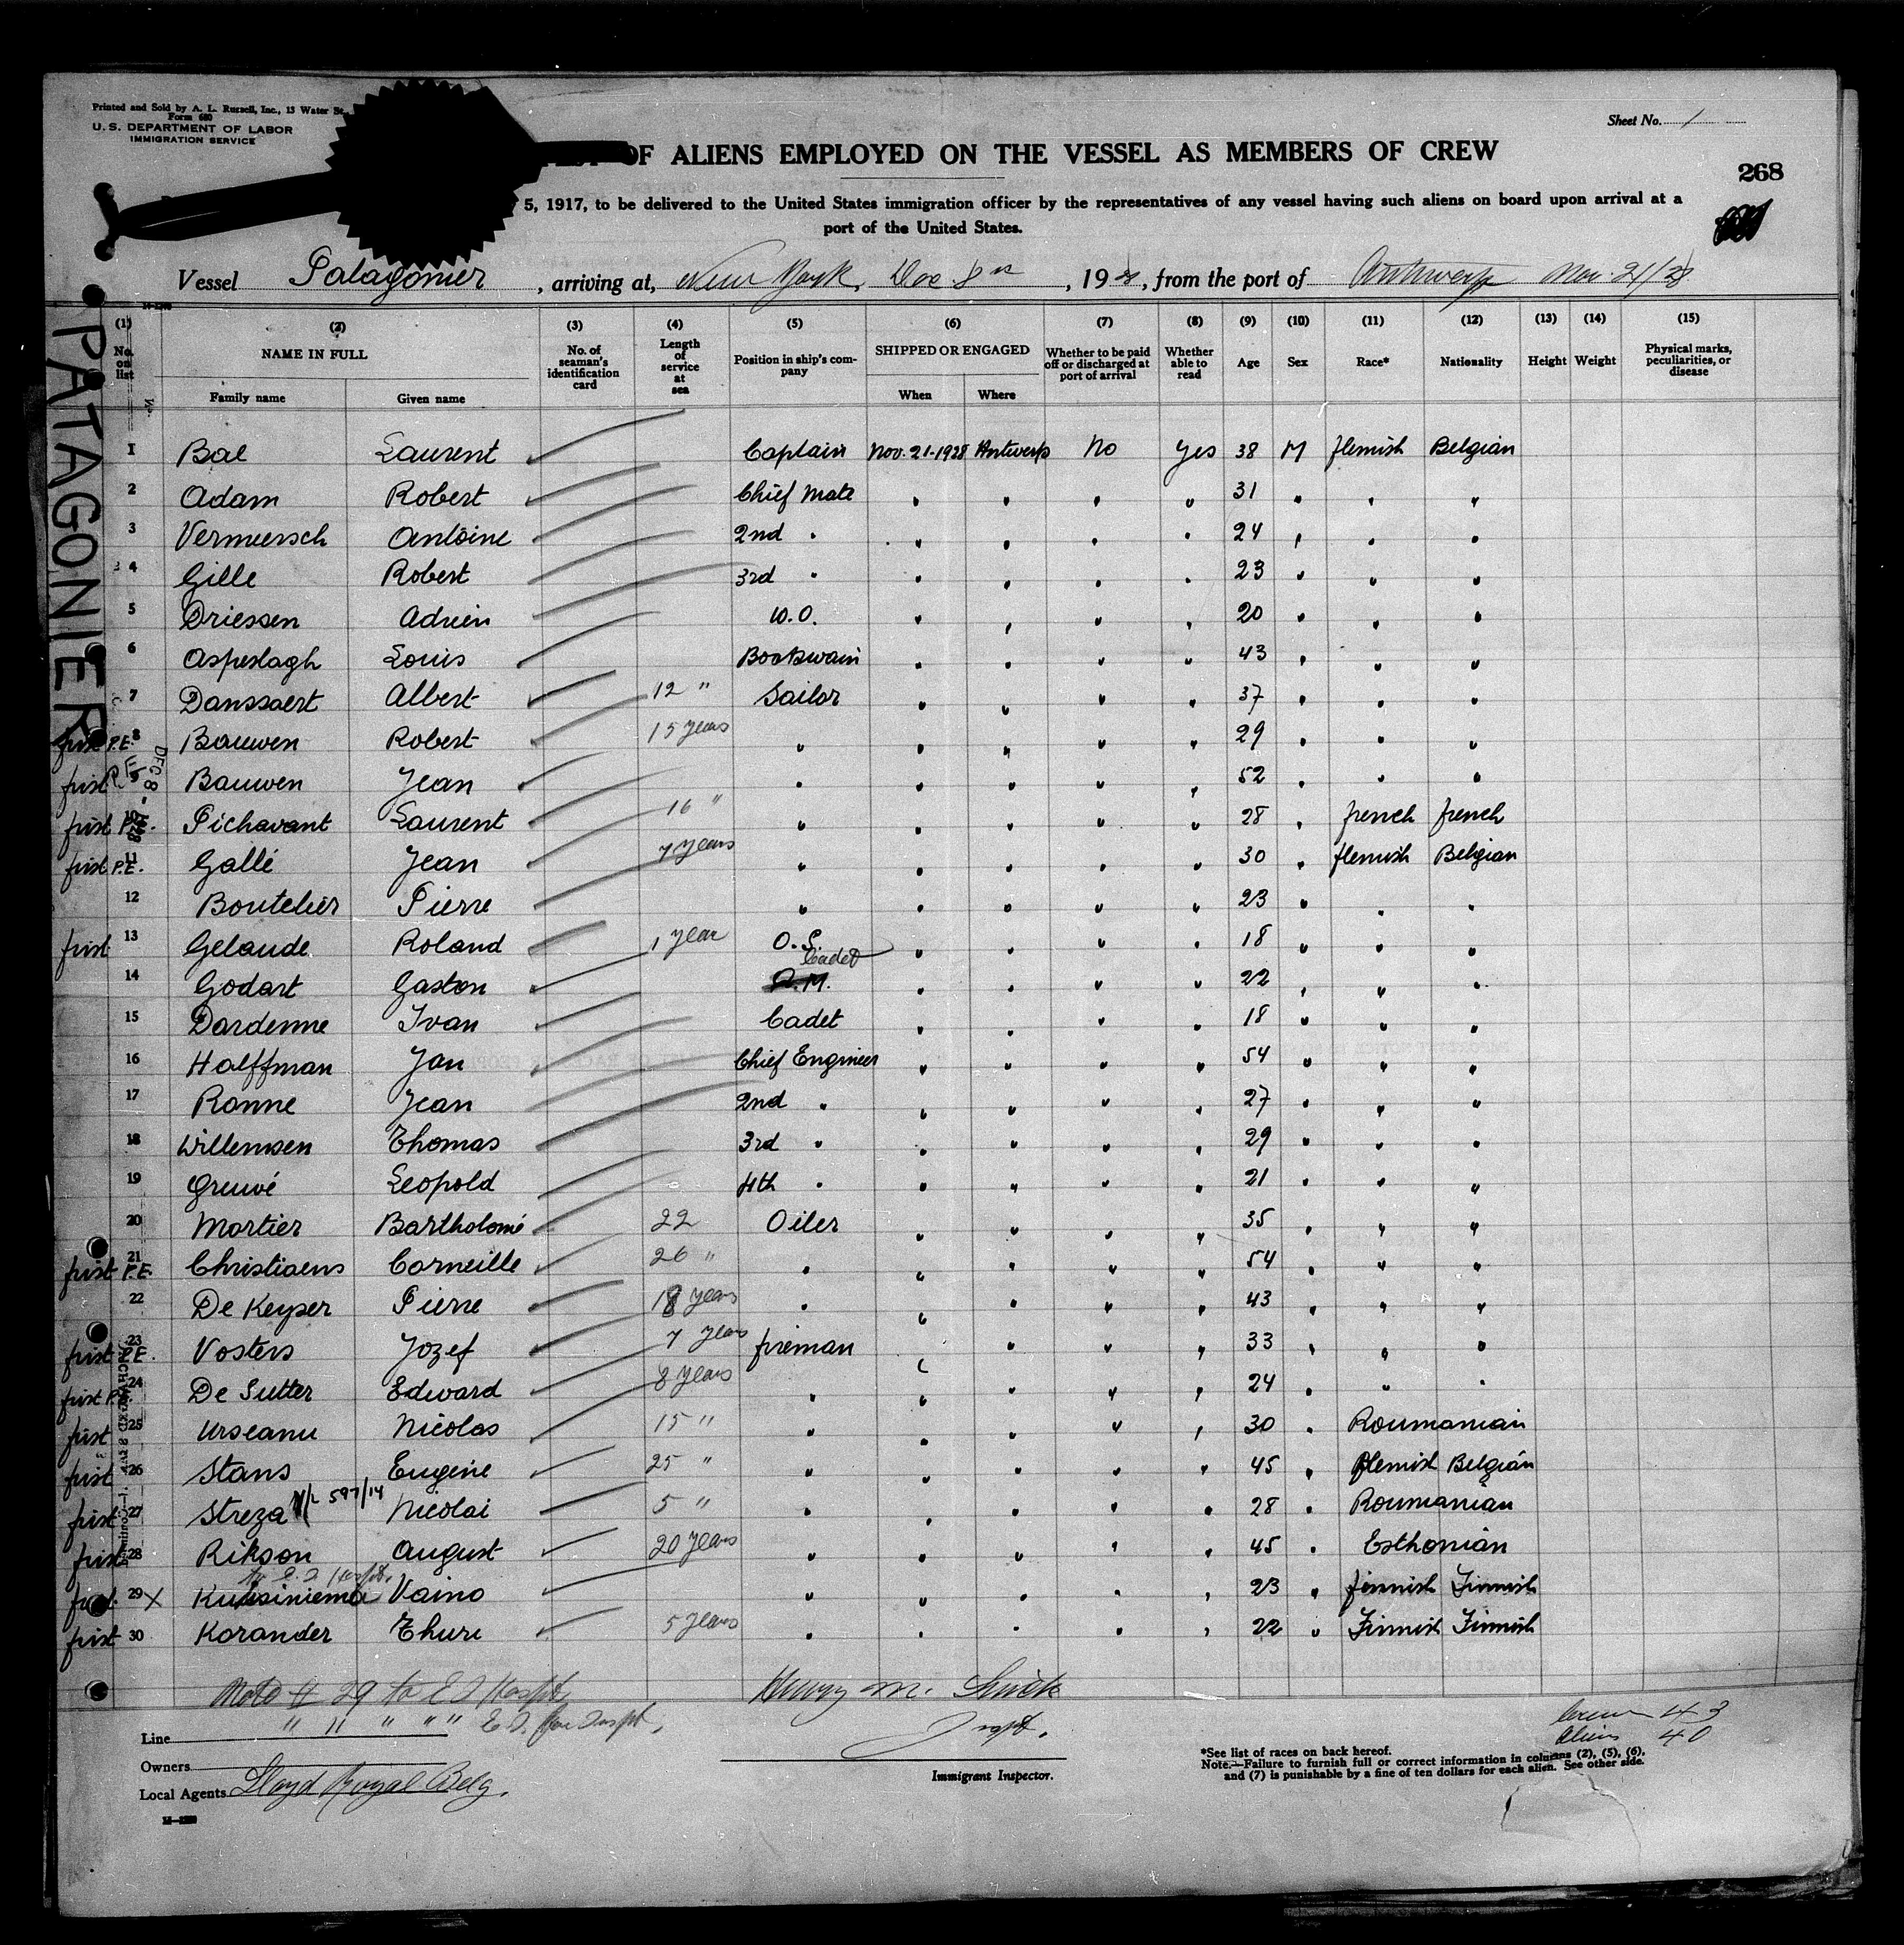 Printed and Sold by A. L. Russell, Inc., 13 Water St.
Form 680
U. S. DEPARTMENT OF LABOR
IMMIGRATION SERVICE
Sheet No. 1
OF ALIENS EMPLOYED ON THE VESSEL AS MEMBERS OF CREW
268
5, 1917, to be delivered to the United States immigration officer by the representatives of any vessel having such aliens on board upon arrival at a
port of the United States.
Vessel Patagonier, arriving at, New York, Dec. 8th, 1928, from the port of Antwerp Nov. 21/28
PATAGONIER
(1) (2) (3) (4) (5) (6) (7) (8) (9) (10) (11) (12) (13) (14) (15)
No. on list NAME IN FULL No. of seaman's identification card Length of service at sea Position in ship's company SHIPPED OR ENGAGED Whether to be paid off or discharged at port of arrival Whether able to read Age Sex Race* Nationality Height Weight Physical marks, peculiarities, or disease
Family name Given name When Where
1 Bal Laurent Captain Nov. 21-1928 Antwerp No Yes 38 M flemish Belgian
2 Adam Robert Chief Mate " " " " 31 " " "
3 Vermeersch Antoine 2nd " " " " " 24 " " "
4 Gille Robert 3rd " " " " " 23 " " "
5 Driessen Adrien W.O. " " " " 20 " " "
6 Aspeslagh Louis Bootswain " " " " 43 " " "
7 Danssaert Albert 12 " Sailor " " " " 37 " " "
first P.E. 8 Bauwen Robert 15 years " " " " " 29 " " "
first P.E. 9 Bauwen Jean " " " " " 52 " " "
first P.E. Pichavant Laurent 16 " " " " " " 28 " french french
first P.E. 11 Gallé Jean 7 years " " " " " 30 " flemish Belgian
12 Boutelier Pierre " " " " " 23 " " "
first 13 Gelaude Roland 1 year O.S. " " " " 18 " " "
14 Godart Gaston Cadet " " " " 22 " " "
15 Dardenne Ivan Cadet " " " " 18 " " "
16 Halffman Jan Chief Engineer " " " " 54 " " "
17 Ronne Jean 2nd " " " " " 27 " " "
18 Willemsen Thomas 3rd " " " " " 29 " " "
19 Greuvé Leopold 4th " " " " " 21 " " "
20 Mortier Bartholomé 22 Oiler " " " " 35 " " "
first P.E. 21 Christiaens Corneille 26 " " " " " " 54 " " "
22 De Keyser Pierre 18 years " " " " " 43 " " "
first P.E. 23 Vosters Jozef 7 years fireman " " " " 33 " " "
first P.E. 24 De Sutter Edward 8 years " " " " " 24 " " "
first 25 Urseanu Nicolas 15 " " " " " " 30 " Roumanian
first 26 Stans Eugène 25 " " " " " " 45 " flemish Belgian
first 27 Streza 597/14 Nicolai 5 " " " " " " 28 " Roumanian
first 28 Rikson August 20 years " " " " " 45 " Esthonian
to E.I. Hospt.
first 29 X Kuusiniema Vaino " " " " " 23 " finnish Finnish
first 30 Korander Thure 5 years " " " " " 22 " Finnish Finnish
DEC 8 - 1928
Note # 29 to E I Hospt
" " " " " E. I. for Inspt.
Henry M.
Inspt.
Crew 43
Aliens 40
Line
Owners
Local Agents Lloyd Royal Belg.
Immigrant Inspector.
*See list of races on back hereof.
Note.—Failure to furnish full or correct information in columns (2), (5), (6),
and (7) is punishable by a fine of ten dollars for each alien. See other side.